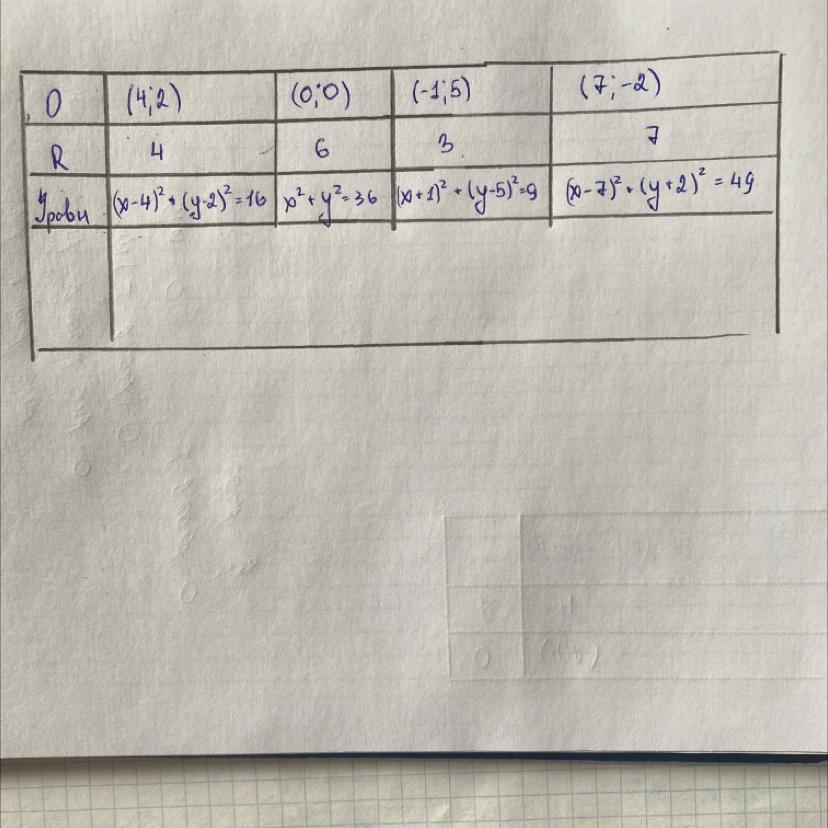 O (4;2) (0;0) (-1;5) (7;-2)
R 4 6 3 7
Уравн (x-4)² + (y-2)² = 16 x² + y² = 36 (x+1)² + (y-5)² = 9 (x-7)² + (y+2)² = 49